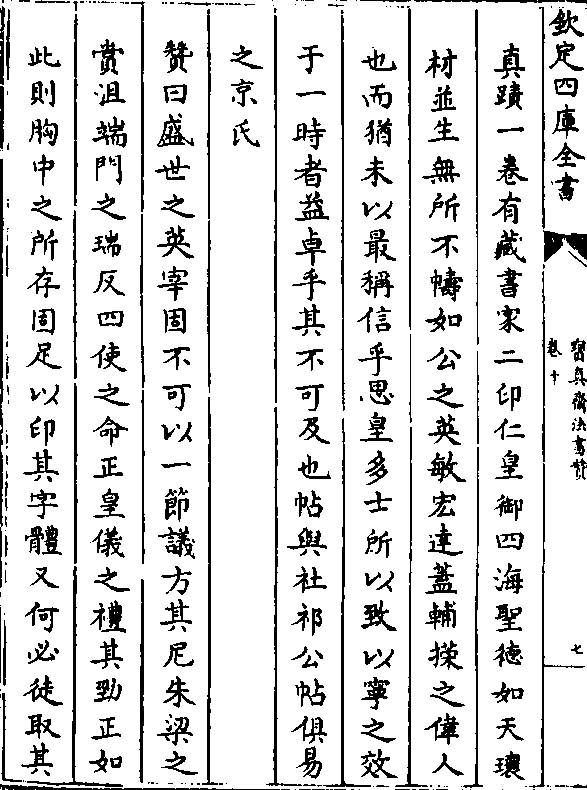 欽定四庫全書
寶真齋法書贊
卷十
七
真蹟一卷有藏書家二印仁皇御四海聖徳如天瓌
材並生無所不幬如公之英敏宏達蓋輔㨗之偉人
也而猶未以最稱信乎思皇多士所以致以寧之效
于一時者益卓乎其不可及也帖與社祁公帖俱易
之京氏
贊曰盛世之英宰固不可以一節議方其尼朱梁之
賞沮端門之瑞反四使之命正皇儀之禮其勁正如
此則胸中之所存固足以印其字體又何必徒取其